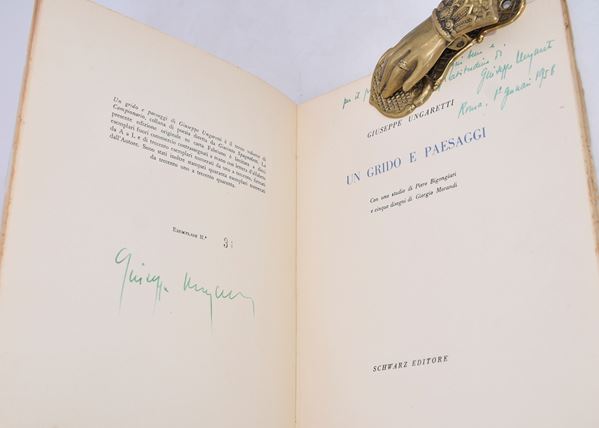 Un grido e paesaggi di Giuseppe Ungaretti è il terzo volume di
Campionario, collana di poesia diretta da Giacinto Spagnoletti. La
presente edizione originale su carta Fabriano è limitata a dieci
esemplari fuori commercio contrassegnati a mano con lettera d'alfabeto
da A a L e di trecento esemplari numerati da uno a trecento, firmati
dall'Autore. Sono stati inoltre stampati quaranta esemplari numerati
da trecento uno a trecento quaranta.
Esemplare N.°
Giuseppe Ungaretti
per il
gratitudine di
Giuseppe Ungaretti
Roma, 1958
GIUSEPPE UNGARETTI
UN GRIDO E PAESAGGI
Con uno studio di Piero Bigongiari
e cinque disegni di Giorgio Morandi
SCHWARZ EDITORE